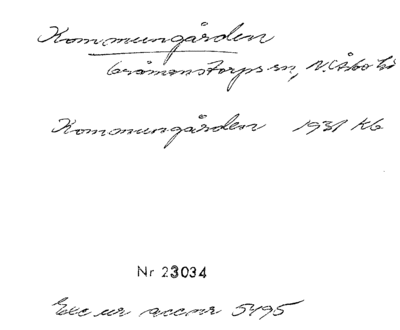 Kommungården
Gråmanstorps sn, N. Åsbo hd
Kommungården 1931 Kb
Nr 23034
Exc ur accnr 5495